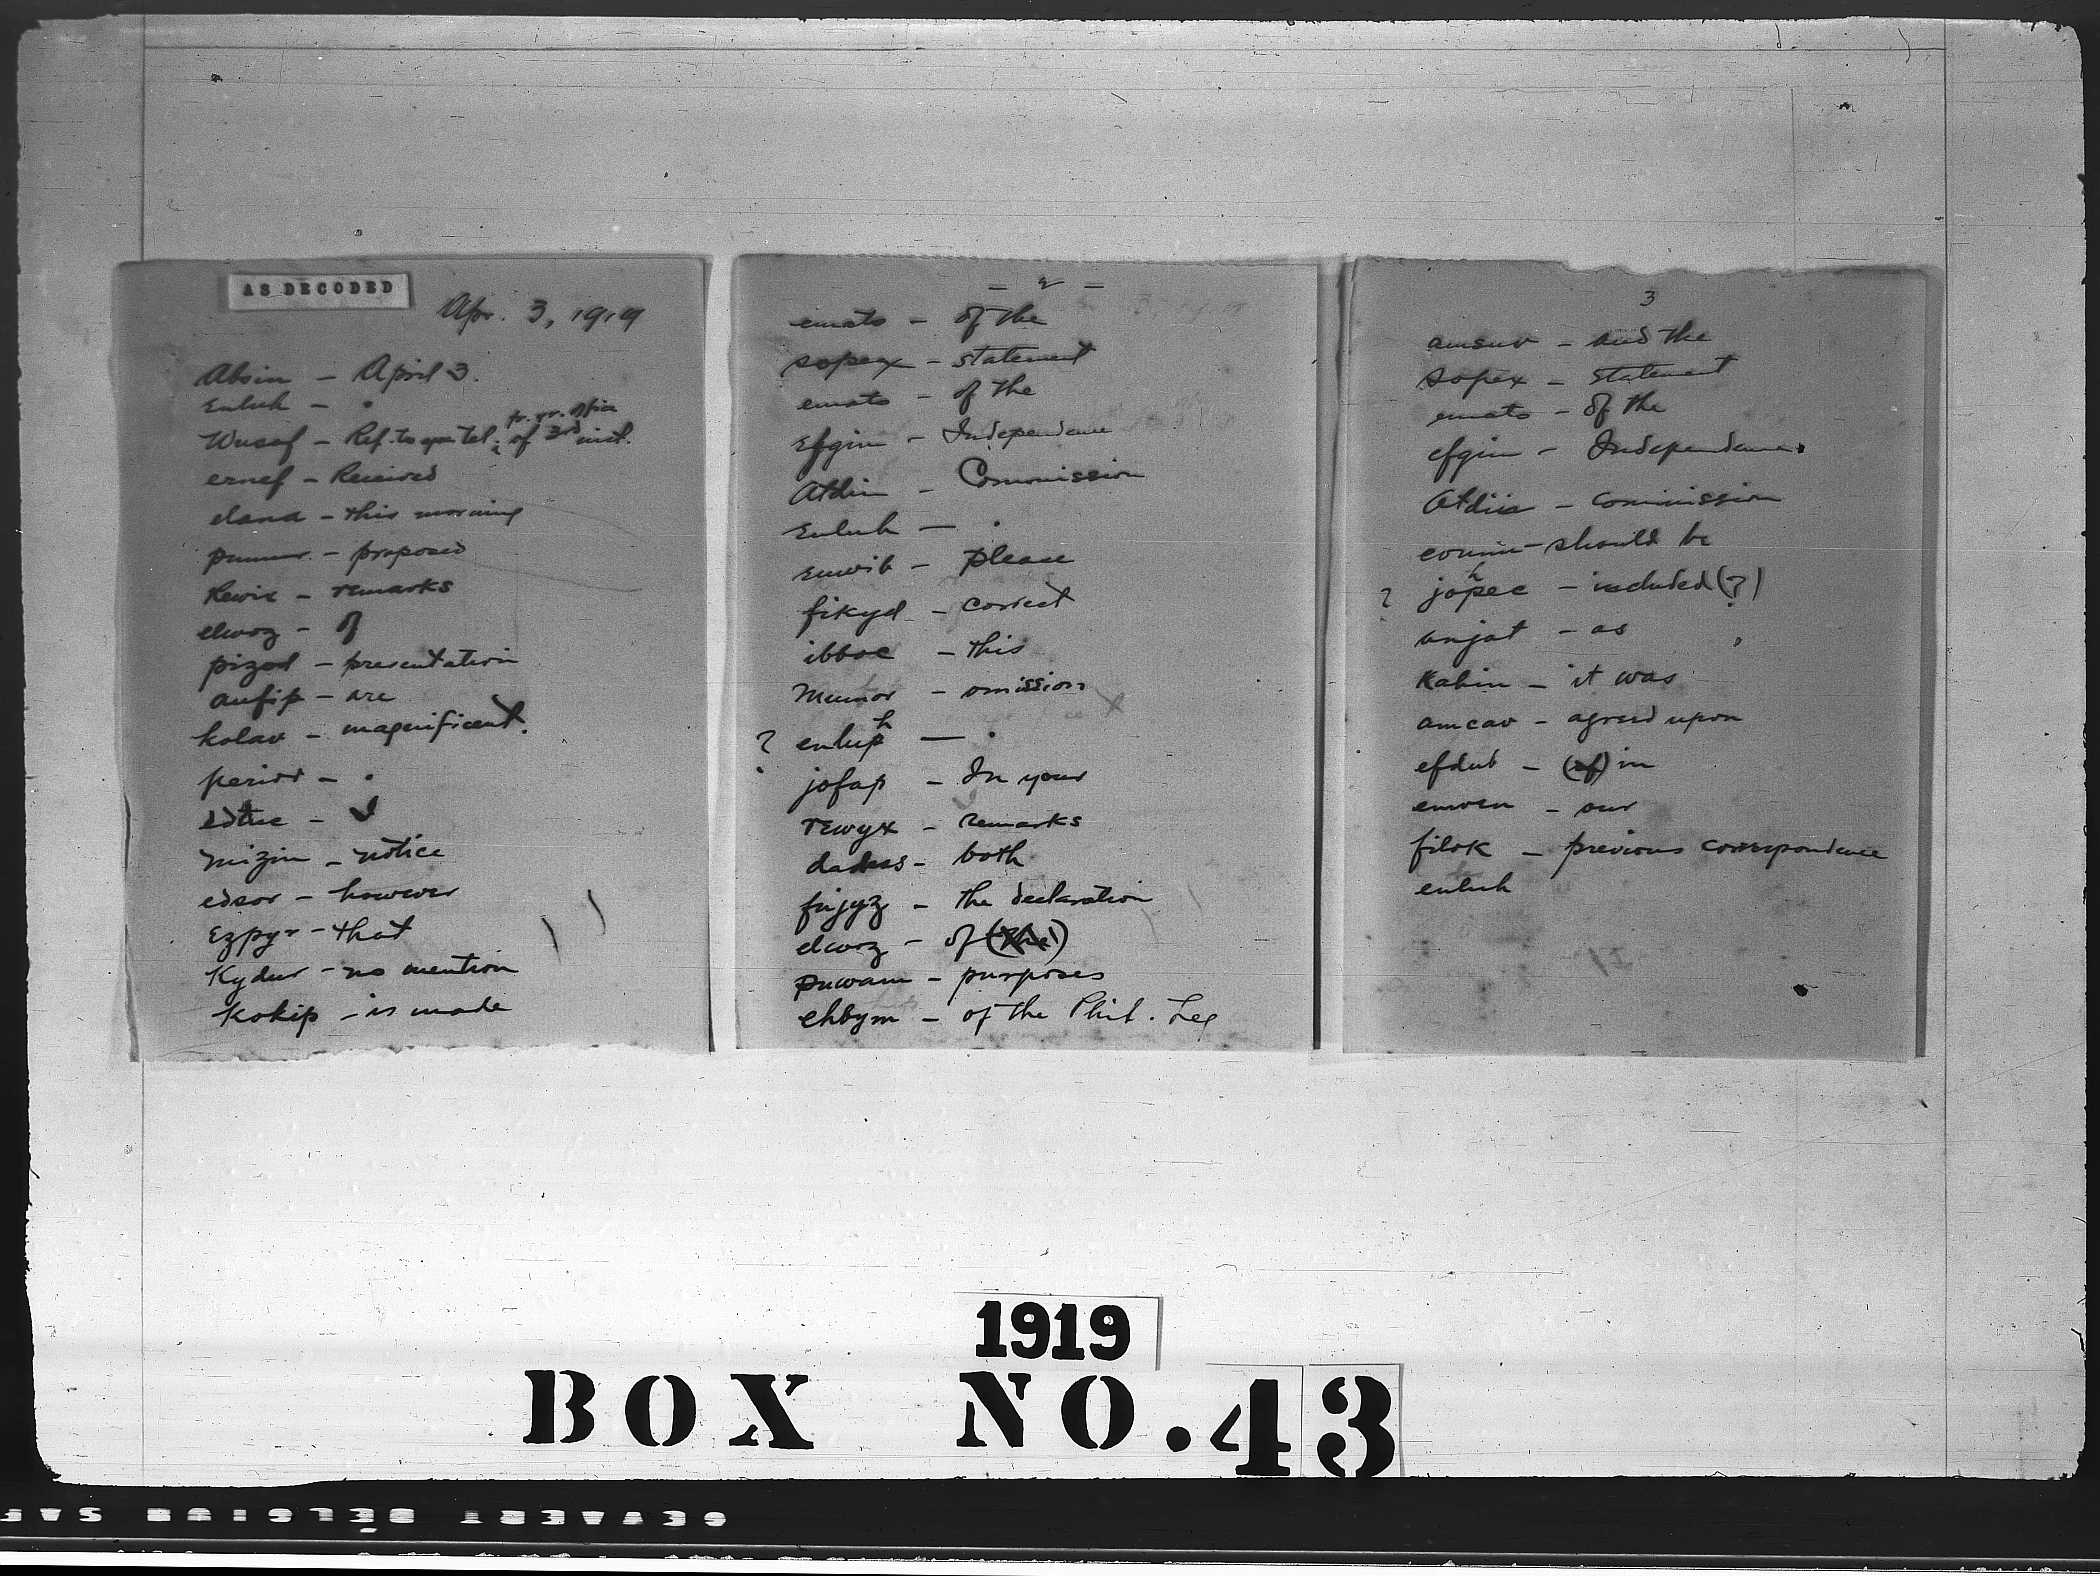 AS DECODED
Apr. 3, 1919
Absin - April 3.
Enluh - .
Wusaf - Ref. to your tel. fr. yr. office of 3rd inst.
ernef - Received
eland - this morning
- proposed
Rewix - remarks
elwoz - of
pizod - presentation
aufip - are
kolav - magnificent.
period - .
- I
Mizin - notice
edsor - however
Ezpyr - that
Kydur - no mention
Kokip - is made
- 2 -
emato - of the
sopex - statement
emato - of the
Efgin - Independence
Atdin - Commission
Enluh - .
Emwib - Please
fikyd - correct
ibboe - this
Mumor - omission
? enluph - .
jofap - In your
rewyx - remarks
- both
fujyz - the declaration
elwoz - of (the)
puwam - purposes
ehbym - of the Phil. Leg
3
amsuv - and the
sopex - statement
emato - of the
efgin - Independence
Atdin - commission
- should be
? johpec - included (?)
anjat - as
Kahin - it was
amcav - agreed upon
efdub - (of) in
emwen - our
filok - previous correspondence
enluh
1919
BOX NO. 43